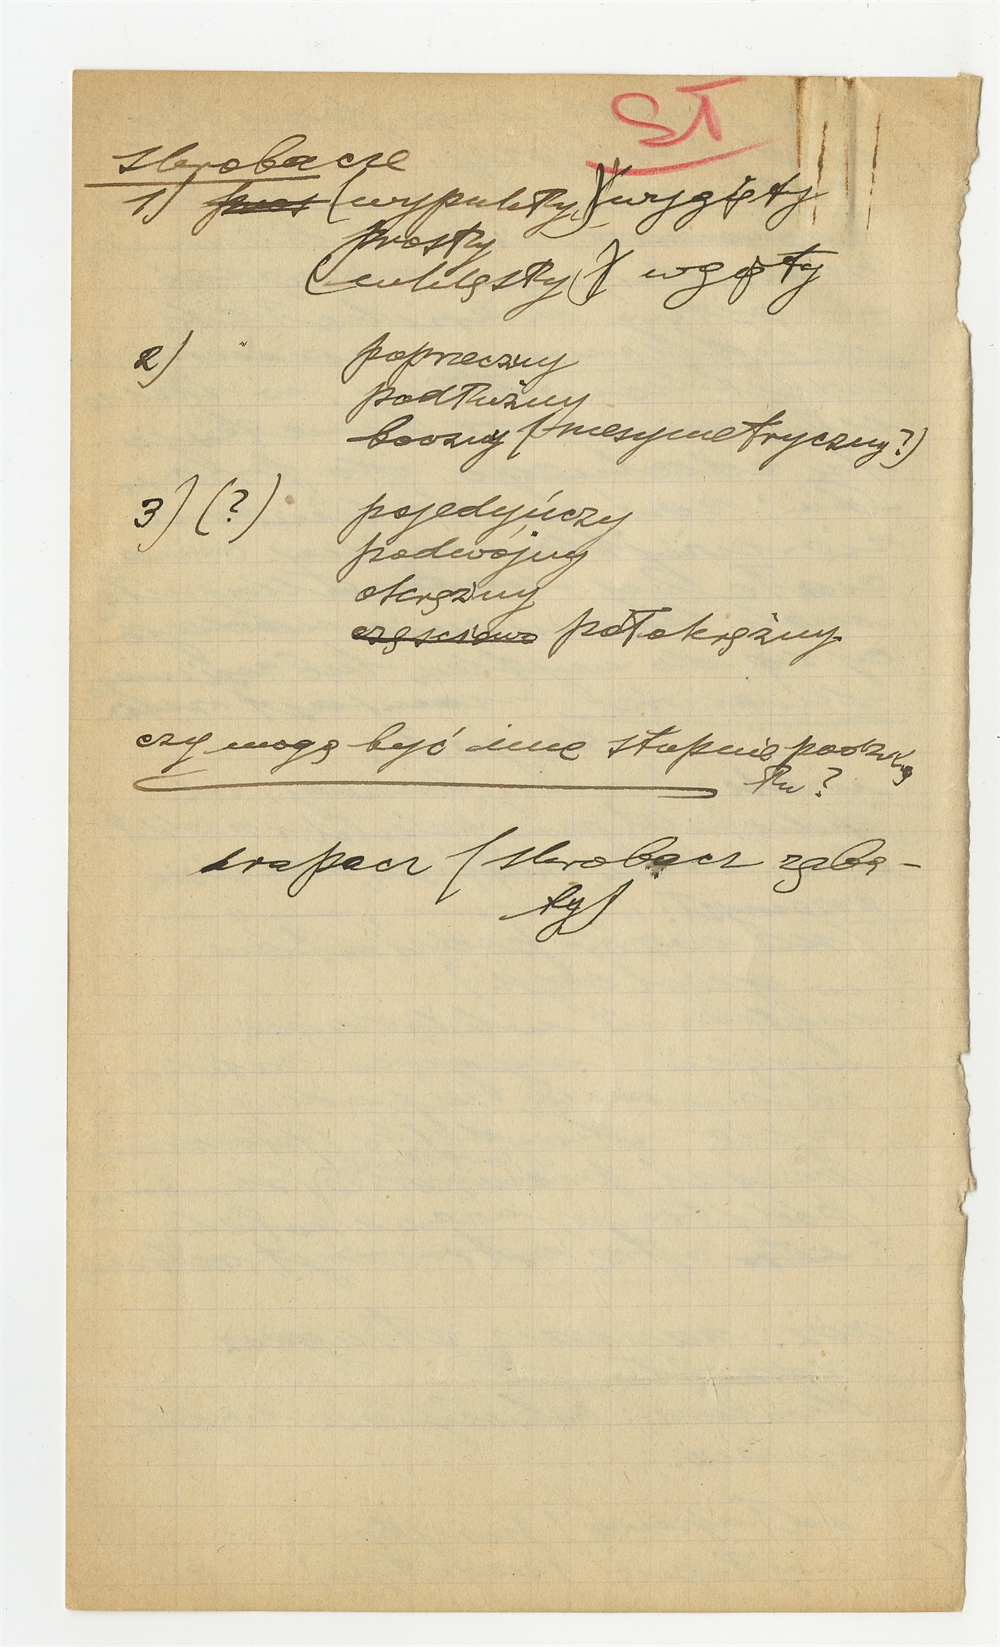 SŁ
skrobacze
1) prost (wypukły) wygięty
prosty
(wklęsły) wgięty
2) " poprzeczny
podłużny
boczny (niesymetryczny?)
3) (?) pojedyńczy
podwójny
okrężny
częściowo półokrężny
czy mogą być inne stopnie podzia
łu?
drapacz (skrobacz zębą-
ty)